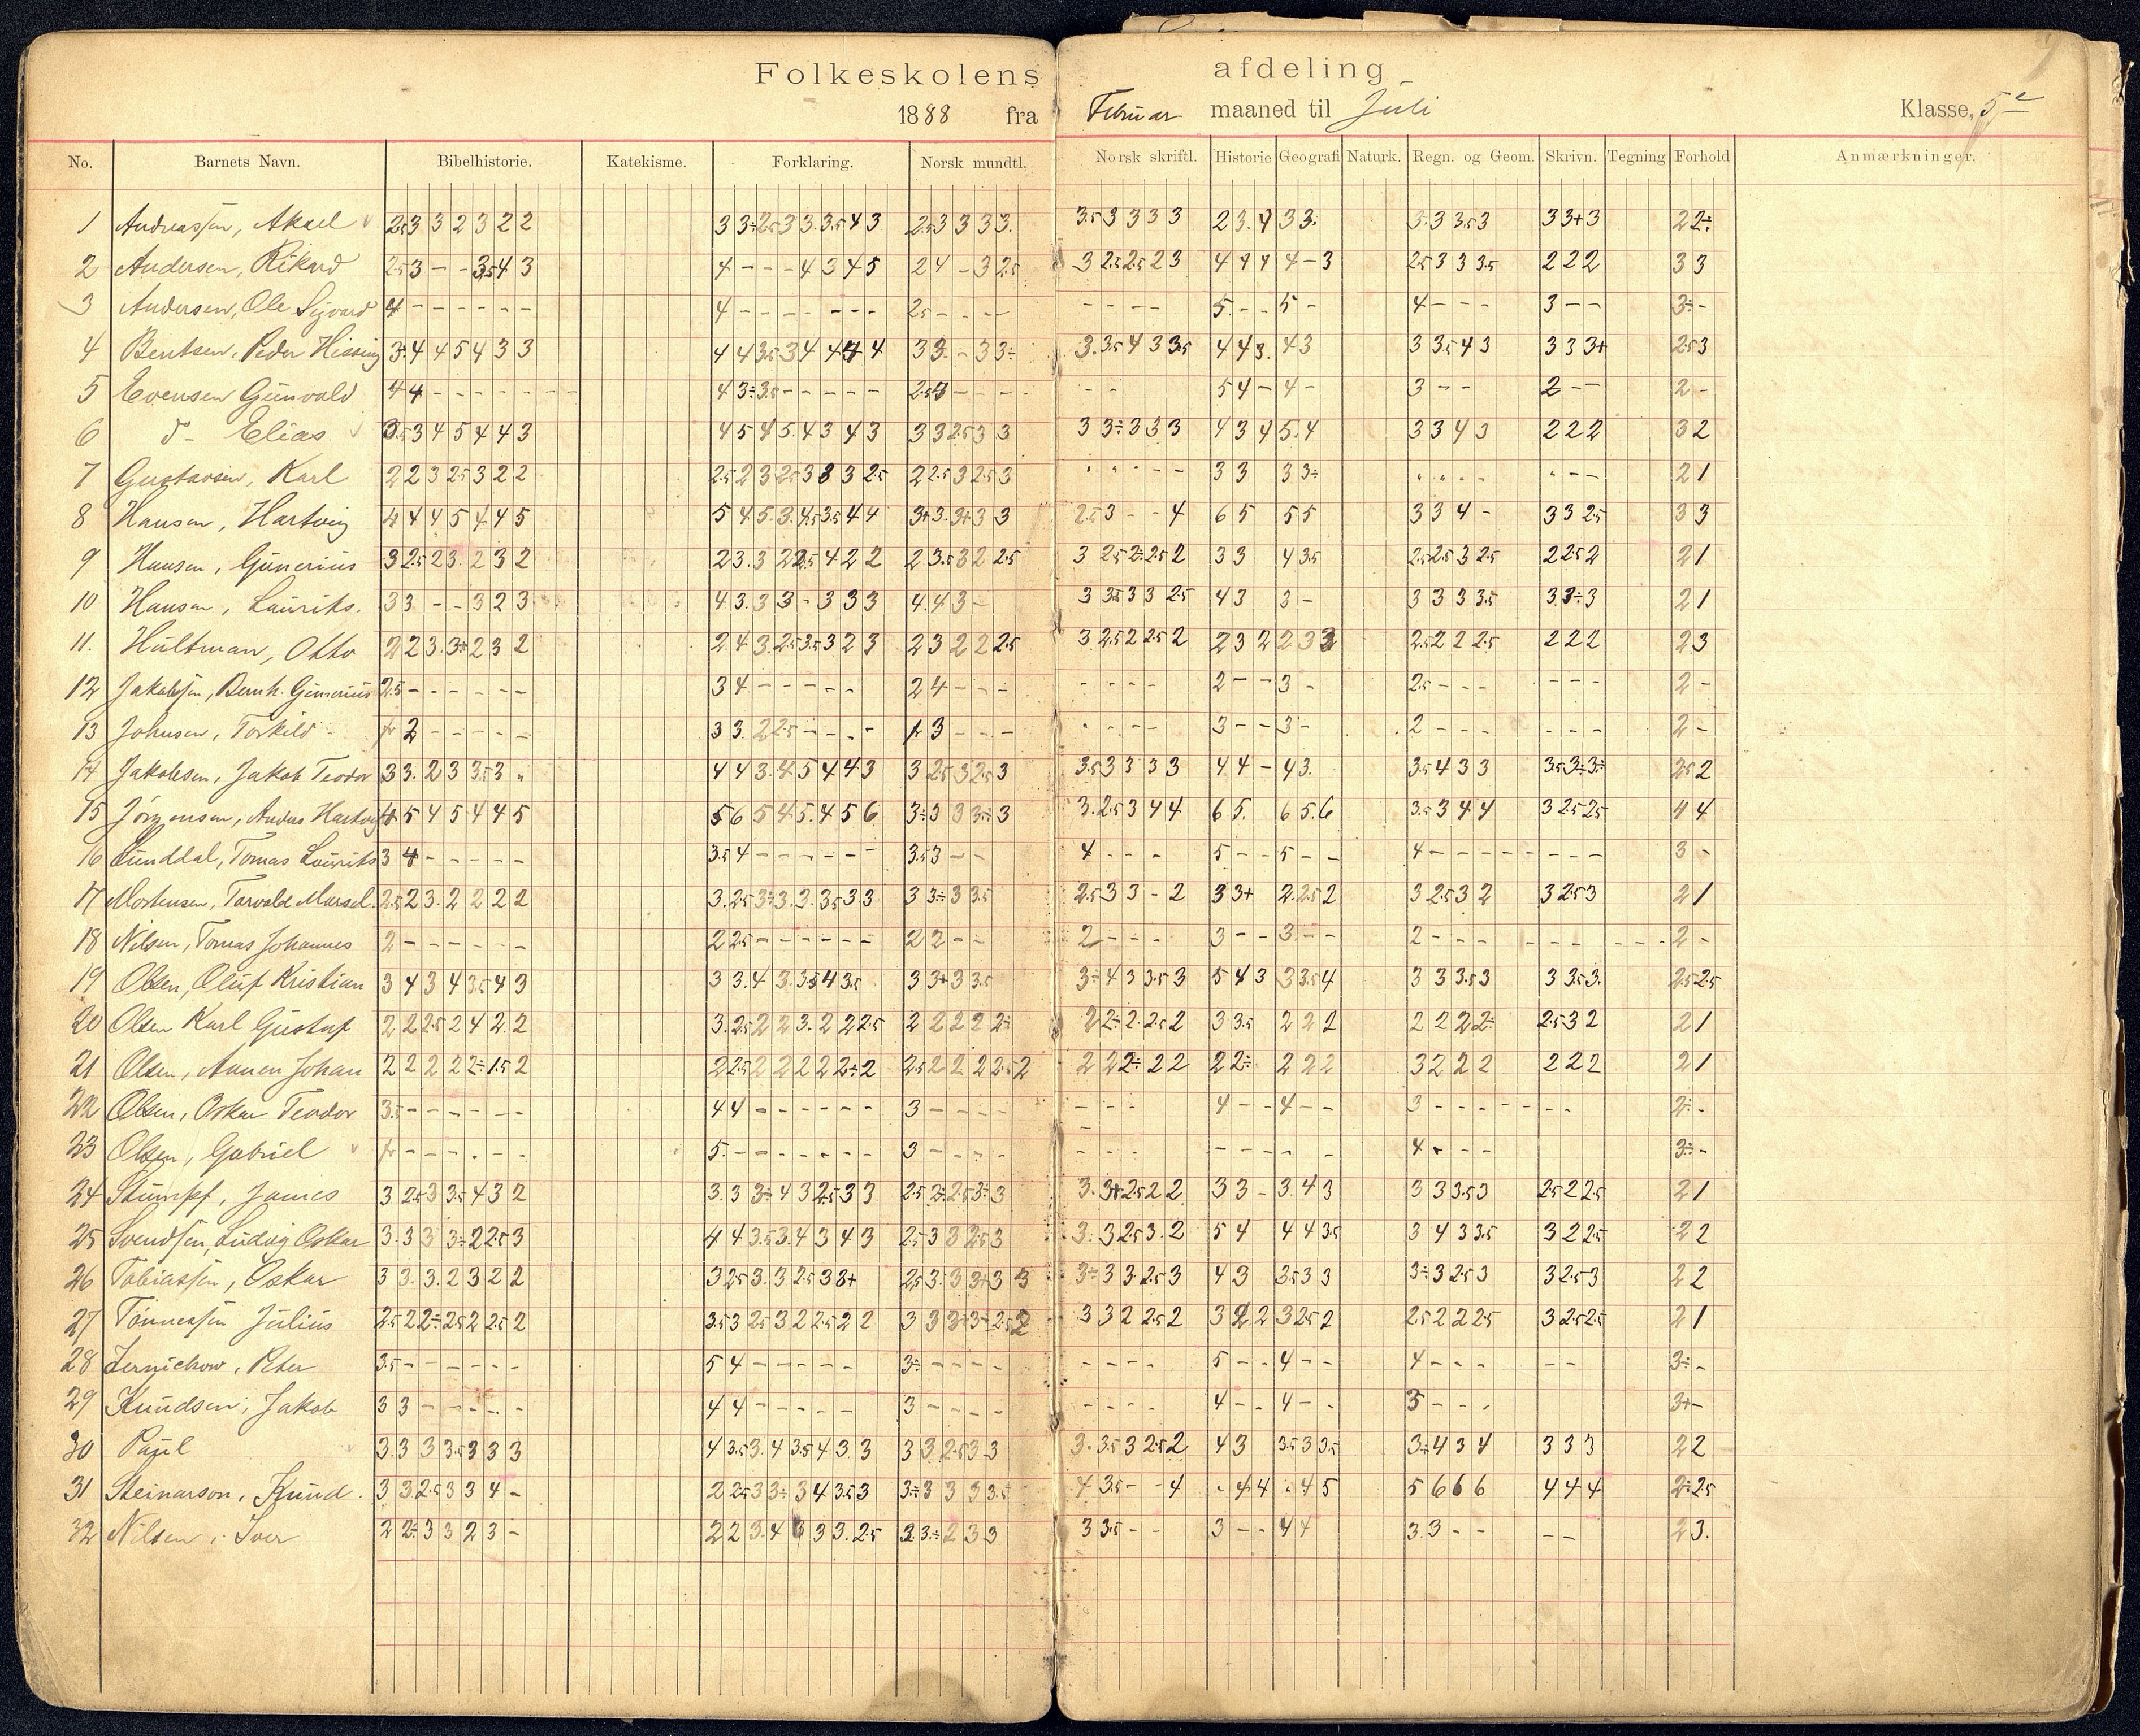 Folkeskolens afdeling
1888 fra Februar maaned til Juli Klasse, 5
No. Barnets Navn. Bibelhistorie. Katekisme. Forklaring. Norsk mundtl. Norsk skriftl. Historie Geografi Naturk. Regn. og Geom. Skrivn. Tegning Forhold Anmærkninger.
1 Andreassen, Aksel 2.5 3 3 2 3 2 2 3 3÷ 2.5 3 3. 3.5 4 3 2.5 3 3 3 3. 3.5 3 3 3 3 2 3. 4 3 3. 3. 3 3.5 3 3 3+ 3 2 2÷
2 Andersen, Rikard 2.5 3 - - 3.5 4 3 4 - - - 4 3 4 5 2 4 - 3 2.5 3 2.5 2.5 2 3 4 4 4 4 - 3 2.5 3 3 3.5 2 2 2 3 3
3 Andersen, Ole Sigvard 4 - - - - - - 4 - - - - - - - 2.5 - - - - - - - - 5 - - 5 - 4 - - - 3 - - 3÷ -
4 Bentsen, Peder Hissing 3. 4 4 5 4 3 3 4 4 3.5 3 4 4 4 4 3 3. - 3 3÷ 3. 3.5 4 3 3.5 4 4 3. 4 3 3 3.5 4 3 3 3 3+ 2.5 3
5 Evensen Gunvald 4 4 - - - - - - - 4 3÷ 3.5 - - - - - 2.5 4 - - - - - 5 4 - 4 - 3 - - 2 - - 2 -
6 d- Elias 3.5 3 4 5 4 4 3 4 5 4 5. 4 3 4 3 3 3 2.5 3 3 3 3÷ 3 3 3 4 3 4 5. 4 3 3 4 3 2 2 2 3 2
7 Gustavsen, Karl 2 2 3 2.5 3 2 2 2.5 2 3 2.5 3 3 3 2.5 2 2.5 3 2.5 3 " " " - - 3 3 3 3÷ " " " - " - - 2 1
8 Hansen, Hartvig 4 4 4 5 4. 4 5 5 4 5. 3. 4.5 3.5 4 4 3+ 3. 3+ 3 3 2.5 3 - - 4 6 5 5 5 3 3 4 - 3 3 2.5 3 3
9 Hansen, Gunerius 3 2.5 2 3. 2 3 2 2 3. 3 2 2.5 4 2 2 2 3.5 3 2 2.5 3 2.5 2÷ 2.5 2 3 3 4 3.5 2.5 2.5 3 2.5 2 2.5 2 2 1
10 Hansen, Lauritz. 3 3 - - 3 2 3 4 3. 3 3 - 3 3 3 4. 4 3 - 3 3.5 3 3 2.5 4 3 3 - 3 3 3 3.5 3. 3÷ 3 2 1
11. Hultman, Otto 2 2 3. 3+ 2 3 2 2 4 3. 2.5 3.5 3 2 3 2 3 2 2 2.5 3 2.5 2 2.5 2 2 3 2 2 3 3 2.5 2 2 2.5 2 2 2 2 3
12 Jakobsen, Bernh. Gunerius 2.5 - - - - - - 3 4 - - - - - 2 4 - - - - - - - 2 - - 3 - 2.5 - - - - - - 2 -
13 Johnsen, Torkild 2 - - - - - 3 3. 2 2.5 - - - - 3 - - - - - - - 3 - - 3 - 2 - - - - - - 2 -
14 Jakobsen, Jakob Teodor 3 3. 2 3 3.5 3 " 4 4 3. 4. 5 4 4 3 3 2.5 3 2.5 3 3.5 3 3 3 3 4 4 - 4 3. 3.5 4 3 3 3.5 3÷ 3÷ 2.5 2
15 Jörgensen, Anders Hartvig 4 5 4 5 4 4 5 5 6 5 4.5 5. 4 5 6 3÷ 3 3 3÷ 3 3. 2.5 3 4 4 6 5. 6 5. 6 3.5 3 4 4 3 2.5 2.5 4 4
16 Lunddal, Tomas Lauritz 3 4 - - - - - 3.5 4 - - - - - - 3.5 3 - - 4 - - - 5 - - 5 - - 4 - - - - - - - - 3 -
17 Mortensen, Torvald Marsel. 2.5 2 3. 2 2 2 2 3. 2.5 3÷ 3. 3. 3.5 3 3 3 3÷ 3 3.5 2.5 3 3 - 2 3 3+ 2. 2.5 2 3 2.5 3 2 3 2.5 3 2 1
18 Nilsen, Tomas Johannes 2 - - - - - - 2 2.5 - - - - - - 2 2 - - 2 - - - 3 - - 3. - - 2 - - - - - - - - - - 2 -
19 Olsen, Oluf Kristian 3 4 3 4 3.5 4 3 3 3. 4 3. 3.5 4 3.5 3 3+ 3 3.5 3÷ 4 3 3.5 3 5 4 3 3 3.5 4 3 3 3.5 3 3 3.5 3. 2.5 2.5
20 Olsen Karl Gustaf 2 2 2.5 2 4 2. 2 3. 2.5 2 2 3. 2 2 2.5 2 2 2 2 2÷ 2 2÷ 2. 2.5 2 3 3.5 2 2 2 2 2 2 2÷ 2.5 3 2 2 1
21 Olsen, Annen Johan 2 2 2 2 2÷ 1.5 2 2 2.5 2 2 2 2 2÷ 2 2.5 2 2 2 2.5 2 2 2 2÷ 2 2 2 2÷ 2 2 2 3 2 2 2 2 2 2 2 1
22 Olsen, Oskar Teodor 3.5 - - - - - - 4 4 - - - - - - 3 - - - - - - - 4 - - 4 - - 3 - - - - - - - 2÷ -
23 Olsen, Gabriel - - - - - - 5. - - - - - - - 3 - - - - - - - - - - - - 4 - - - 3÷ -
24 Stumpf, James 3 2.5 3 3.5 4 3 2 3. 3 3÷ 4 3 2.5 3 3 2.5 2÷ 2.5 3÷ 3 3. 3+ 2.5 2 2 3 3 - 3. 4 3 3 3 3.5 3 2.5 2 2.5 2 1
25 Svendsen, Ludvig Oskar 3. 3 3 3÷ 2 2.5 3 4 4 3.5 3. 4 3 4 3 2.5 3 3 2.5 3 3. 3 2.5 3. 2 5 4 4 4 3.5 3 4 3 3.5 3 2 2.5 2 2
26 Tobiassen, Oskar 3 3. 3. 2 3 2 2 3 2.5 3. 3 2.5 3 3+ 2.5 3. 3 3+ 3 3 3÷ 3 3 2.5 3 4 3 3.5 3 3 3÷ 3 2.5 3 3 2.5 3 2 2
27 Tönnessen Julius 2.5 2 2÷ 2.5 2 2.5 2 3.5 3 2.5 3 2 2.5 2 2 3 3 3+ 3÷ 2.5 2 3 3 2 2.5 2 3 2 2 3 2.5 2 2.5 2 2 2.5 3 2.5 2.5 2 1
28 Zernichow, Peter 3.5 - - - - - - 5 4 - - - - - 3÷ - - - - - - - - 5 - - 4 - - 4 - - - - - 3÷ -
29 Knudsen, Jakob 3 3 - - - - - 4 4 - - - - - 3 - - - - - - - - 4 - - 4 - - 3 - - - 3+ -
30 Paul 3. 3 3 3.5 3 3 3 4 3.5 3. 4 3.5 4 3. 3 3 3 2.5 3 3 3. 3.5 3 2.5 2 4 3 3.5 3 3.5 3÷ 4 3 4 3 3 3 2 2
31 Steinarson, Knud. 3 3. 2.5 3 3 4 - 2 2.5 3 3÷ 3 4 3.5 3 3÷ 3 3 3 3.5 4 3.5 - - 4 " 4 4 " 4 5 5 6 6 6 4 4 4 2÷ 2.5
32 Nilsen, Iver 2 2÷ 3 3 2 3 - 2 2 3. 4 3 3. 2.5 3. 3÷ 2 3 3 3 3.5 - - 3 - - 4 4 3. 3 - - - - 2 3.